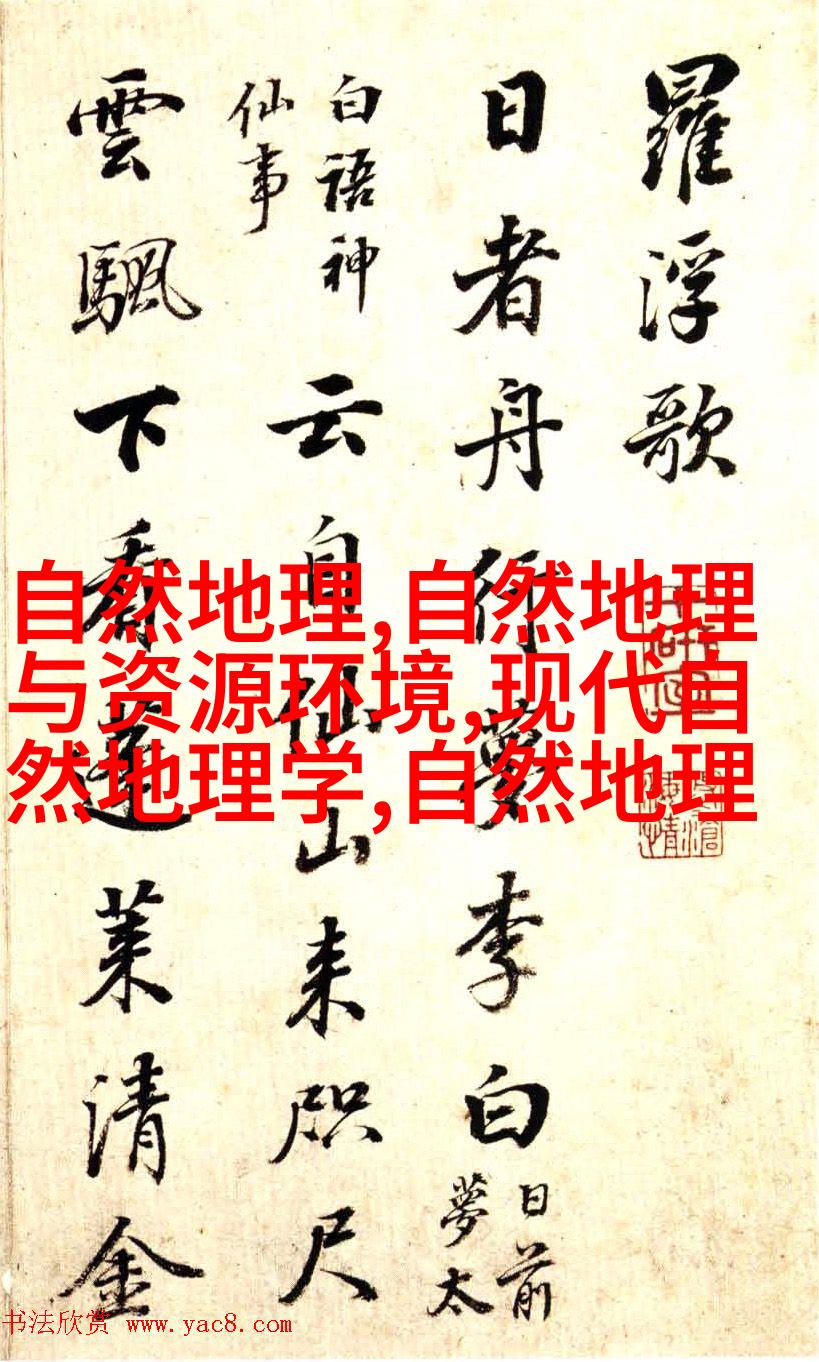 羅浮歌
日者舟行夢李白
日前
夢太
白語神
仙事
云自仙山来咫尺
雲颿下看蓬莱清金
自然地理,自然地理
与资源环境,现代自
然地理学,自然地理
书法欣赏 www.yac8.com